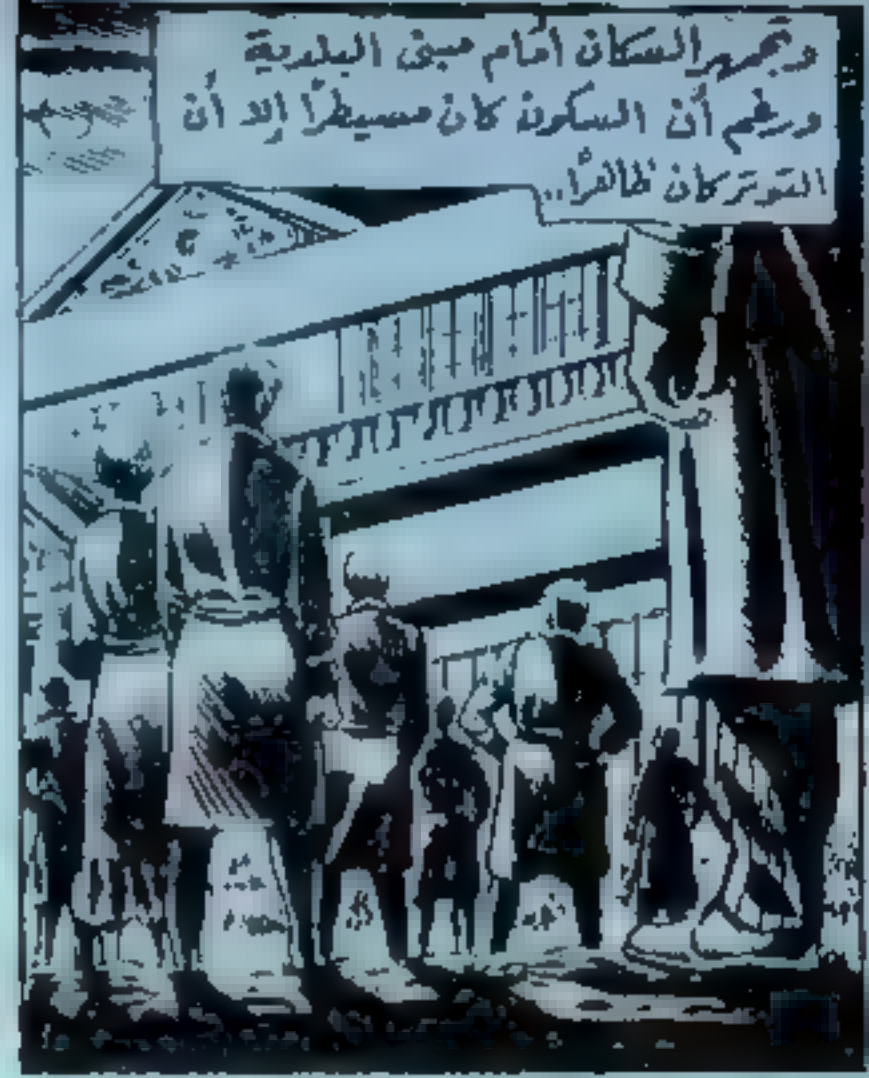 وتجمهر السكان أمام مبنى البلدية
ورغم أن السكون كان مسيطرًا إلا أن
التوتر كان ظاهرًا..